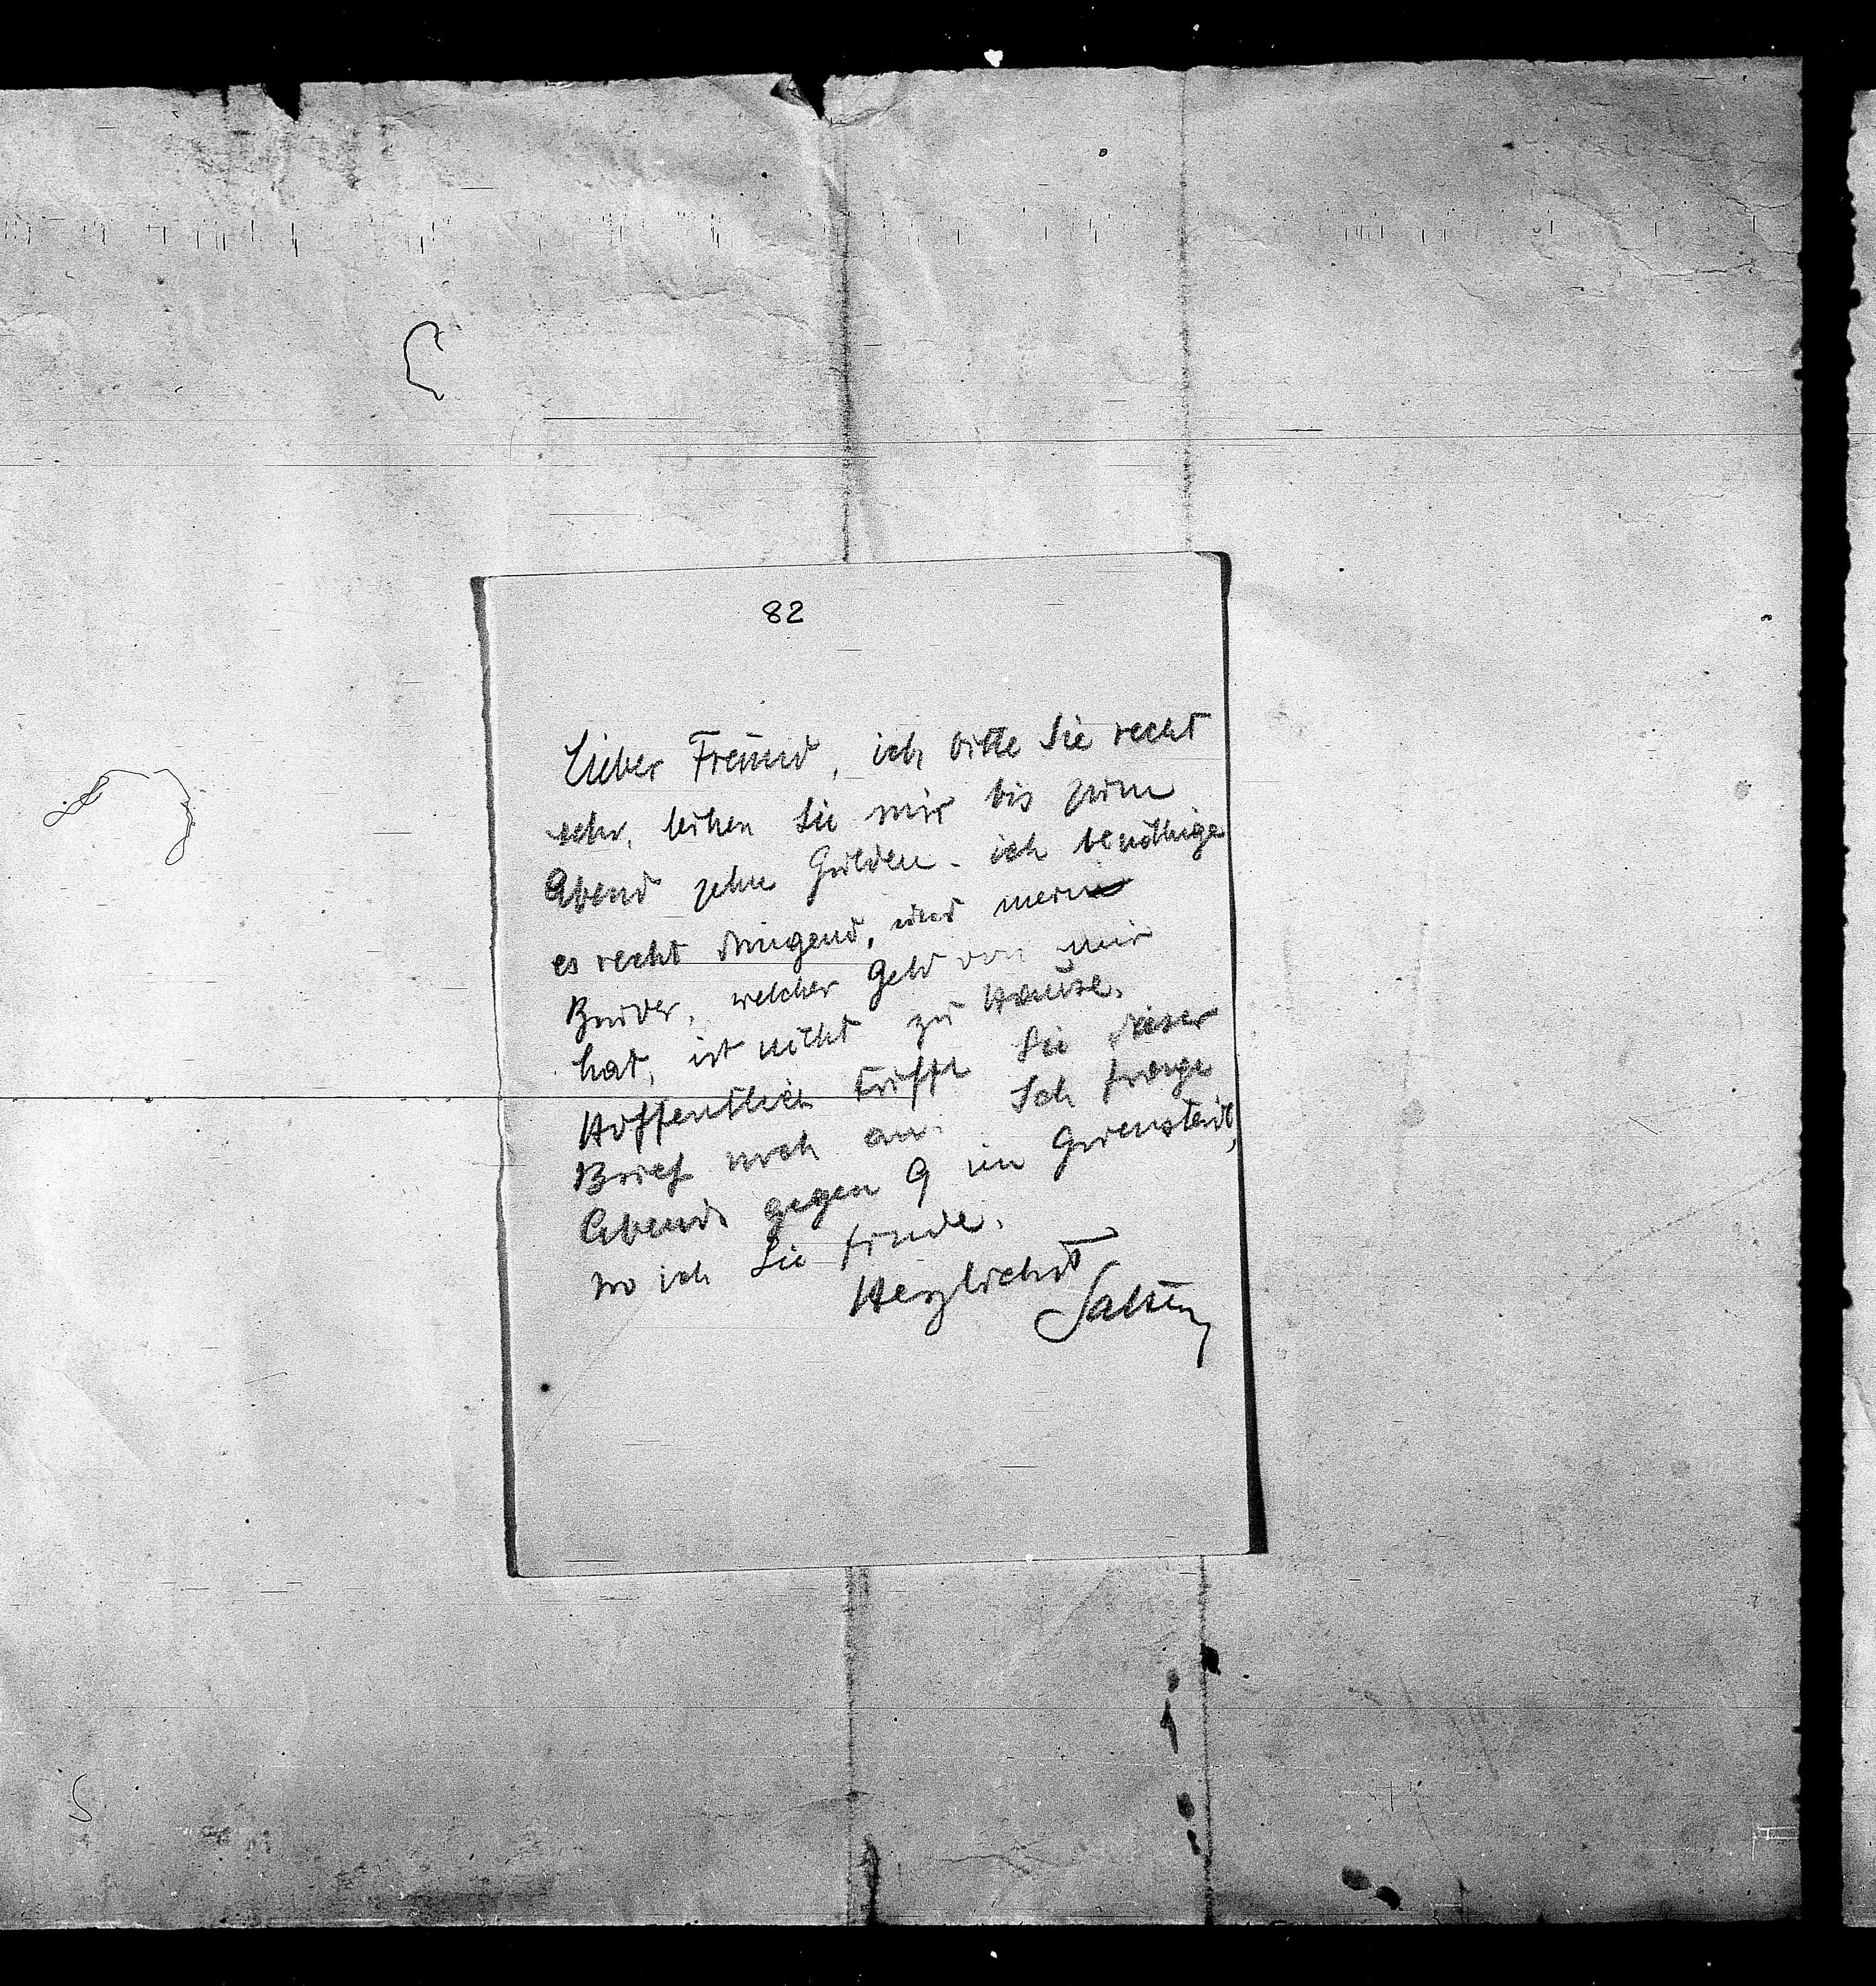 82
Lieber Freund, ich bitte Sie recht
sehr, leihen Sie mir bis zum
Abend zehn Gulden. ich benöthige
es recht dringend, und mein
Bruder, welcher Geld von mir
hat, ist nicht zu Hause.
Hoffentlich trifft Sie dieser
Brief noch an. Ich frage
Abends gegen 9 im Griensteidl,
wo ich Sie finde.
Herzlichst
Salten